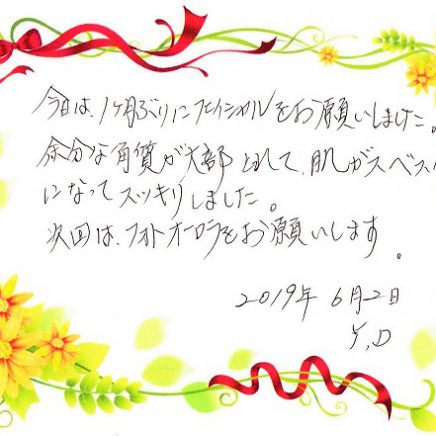 今日は、1ヶ月ぶりにフェイシャルをお願いしました。
余分な角質が大部とれて、肌がスベスベ
になってスッキリしました。
次回は、フォトオーロラをお願いします。
2019年 6月2日
Y,D